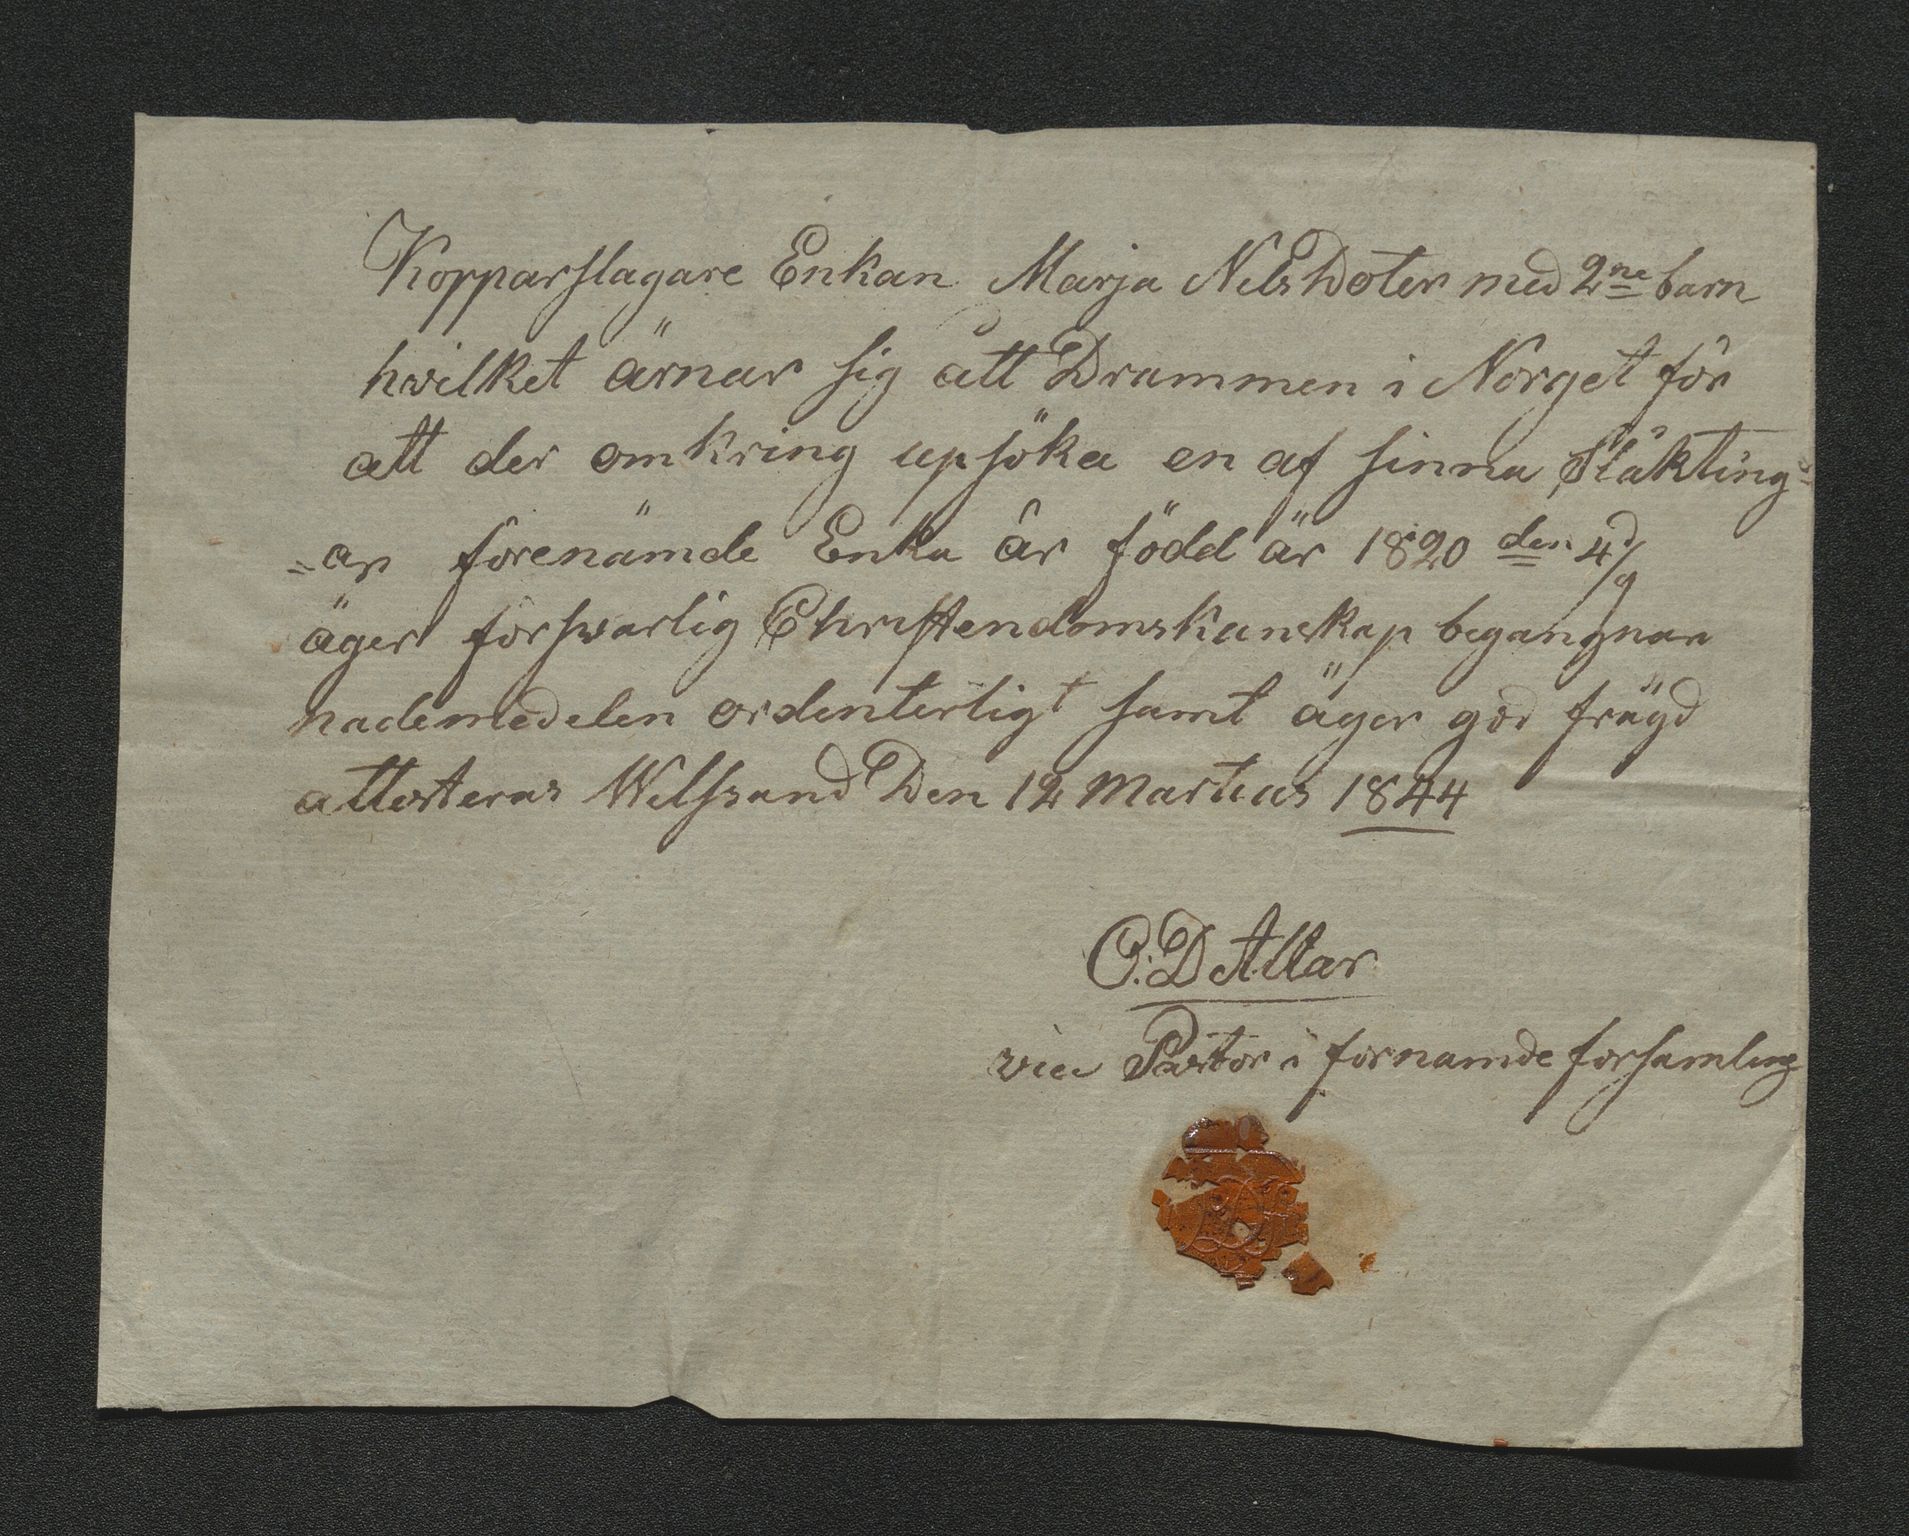 Kopparslagare Enkan Marja NilsDoter med 2ne barn
hvilket ärnar sig att Drammen i Norget för
att der omkring upsöka en af sinna Släkting=
=ar förenämde Enka är född är 1820 den 4/9
äger forswarlig Christendomskunskap begangnar
nademedelen ordenterligt samt äger god frägd
attesteras Den 12 Martius 1844
O: D Altar
vice Pastor i fornamde forsamling